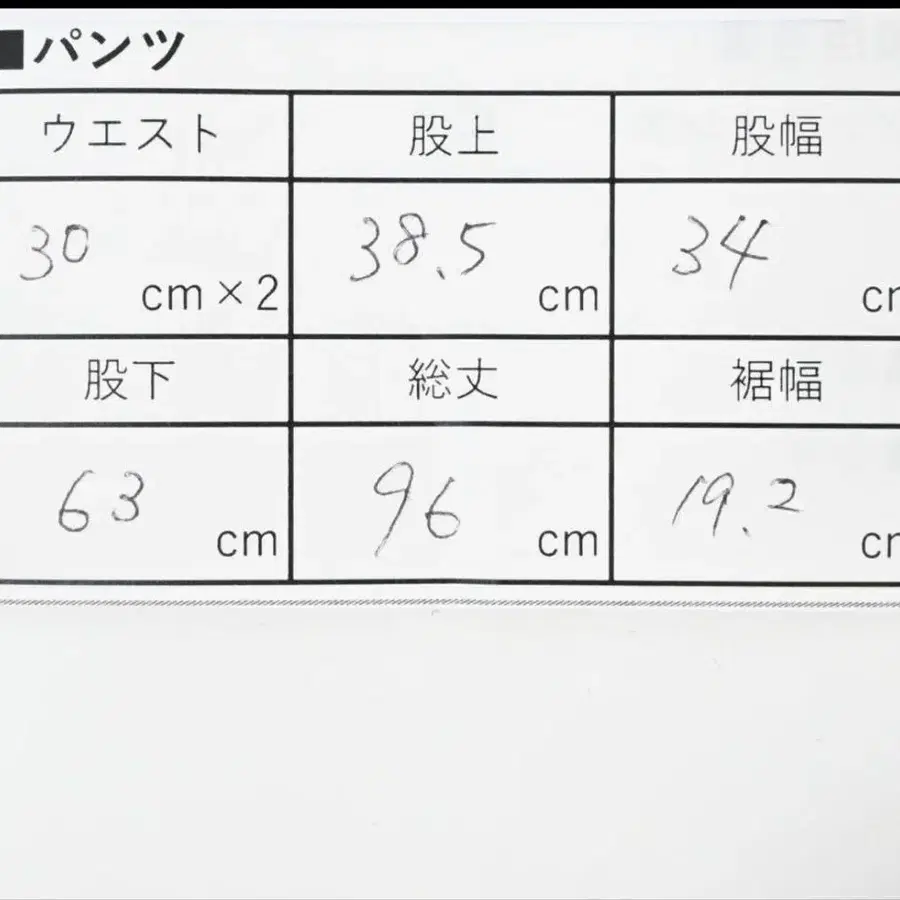 ■パンツ
ウエスト 股上 股幅
30 cm×2 38.5 cm 34 cm
股下 総丈 裾幅
63 cm 96 cm 19.2 cm